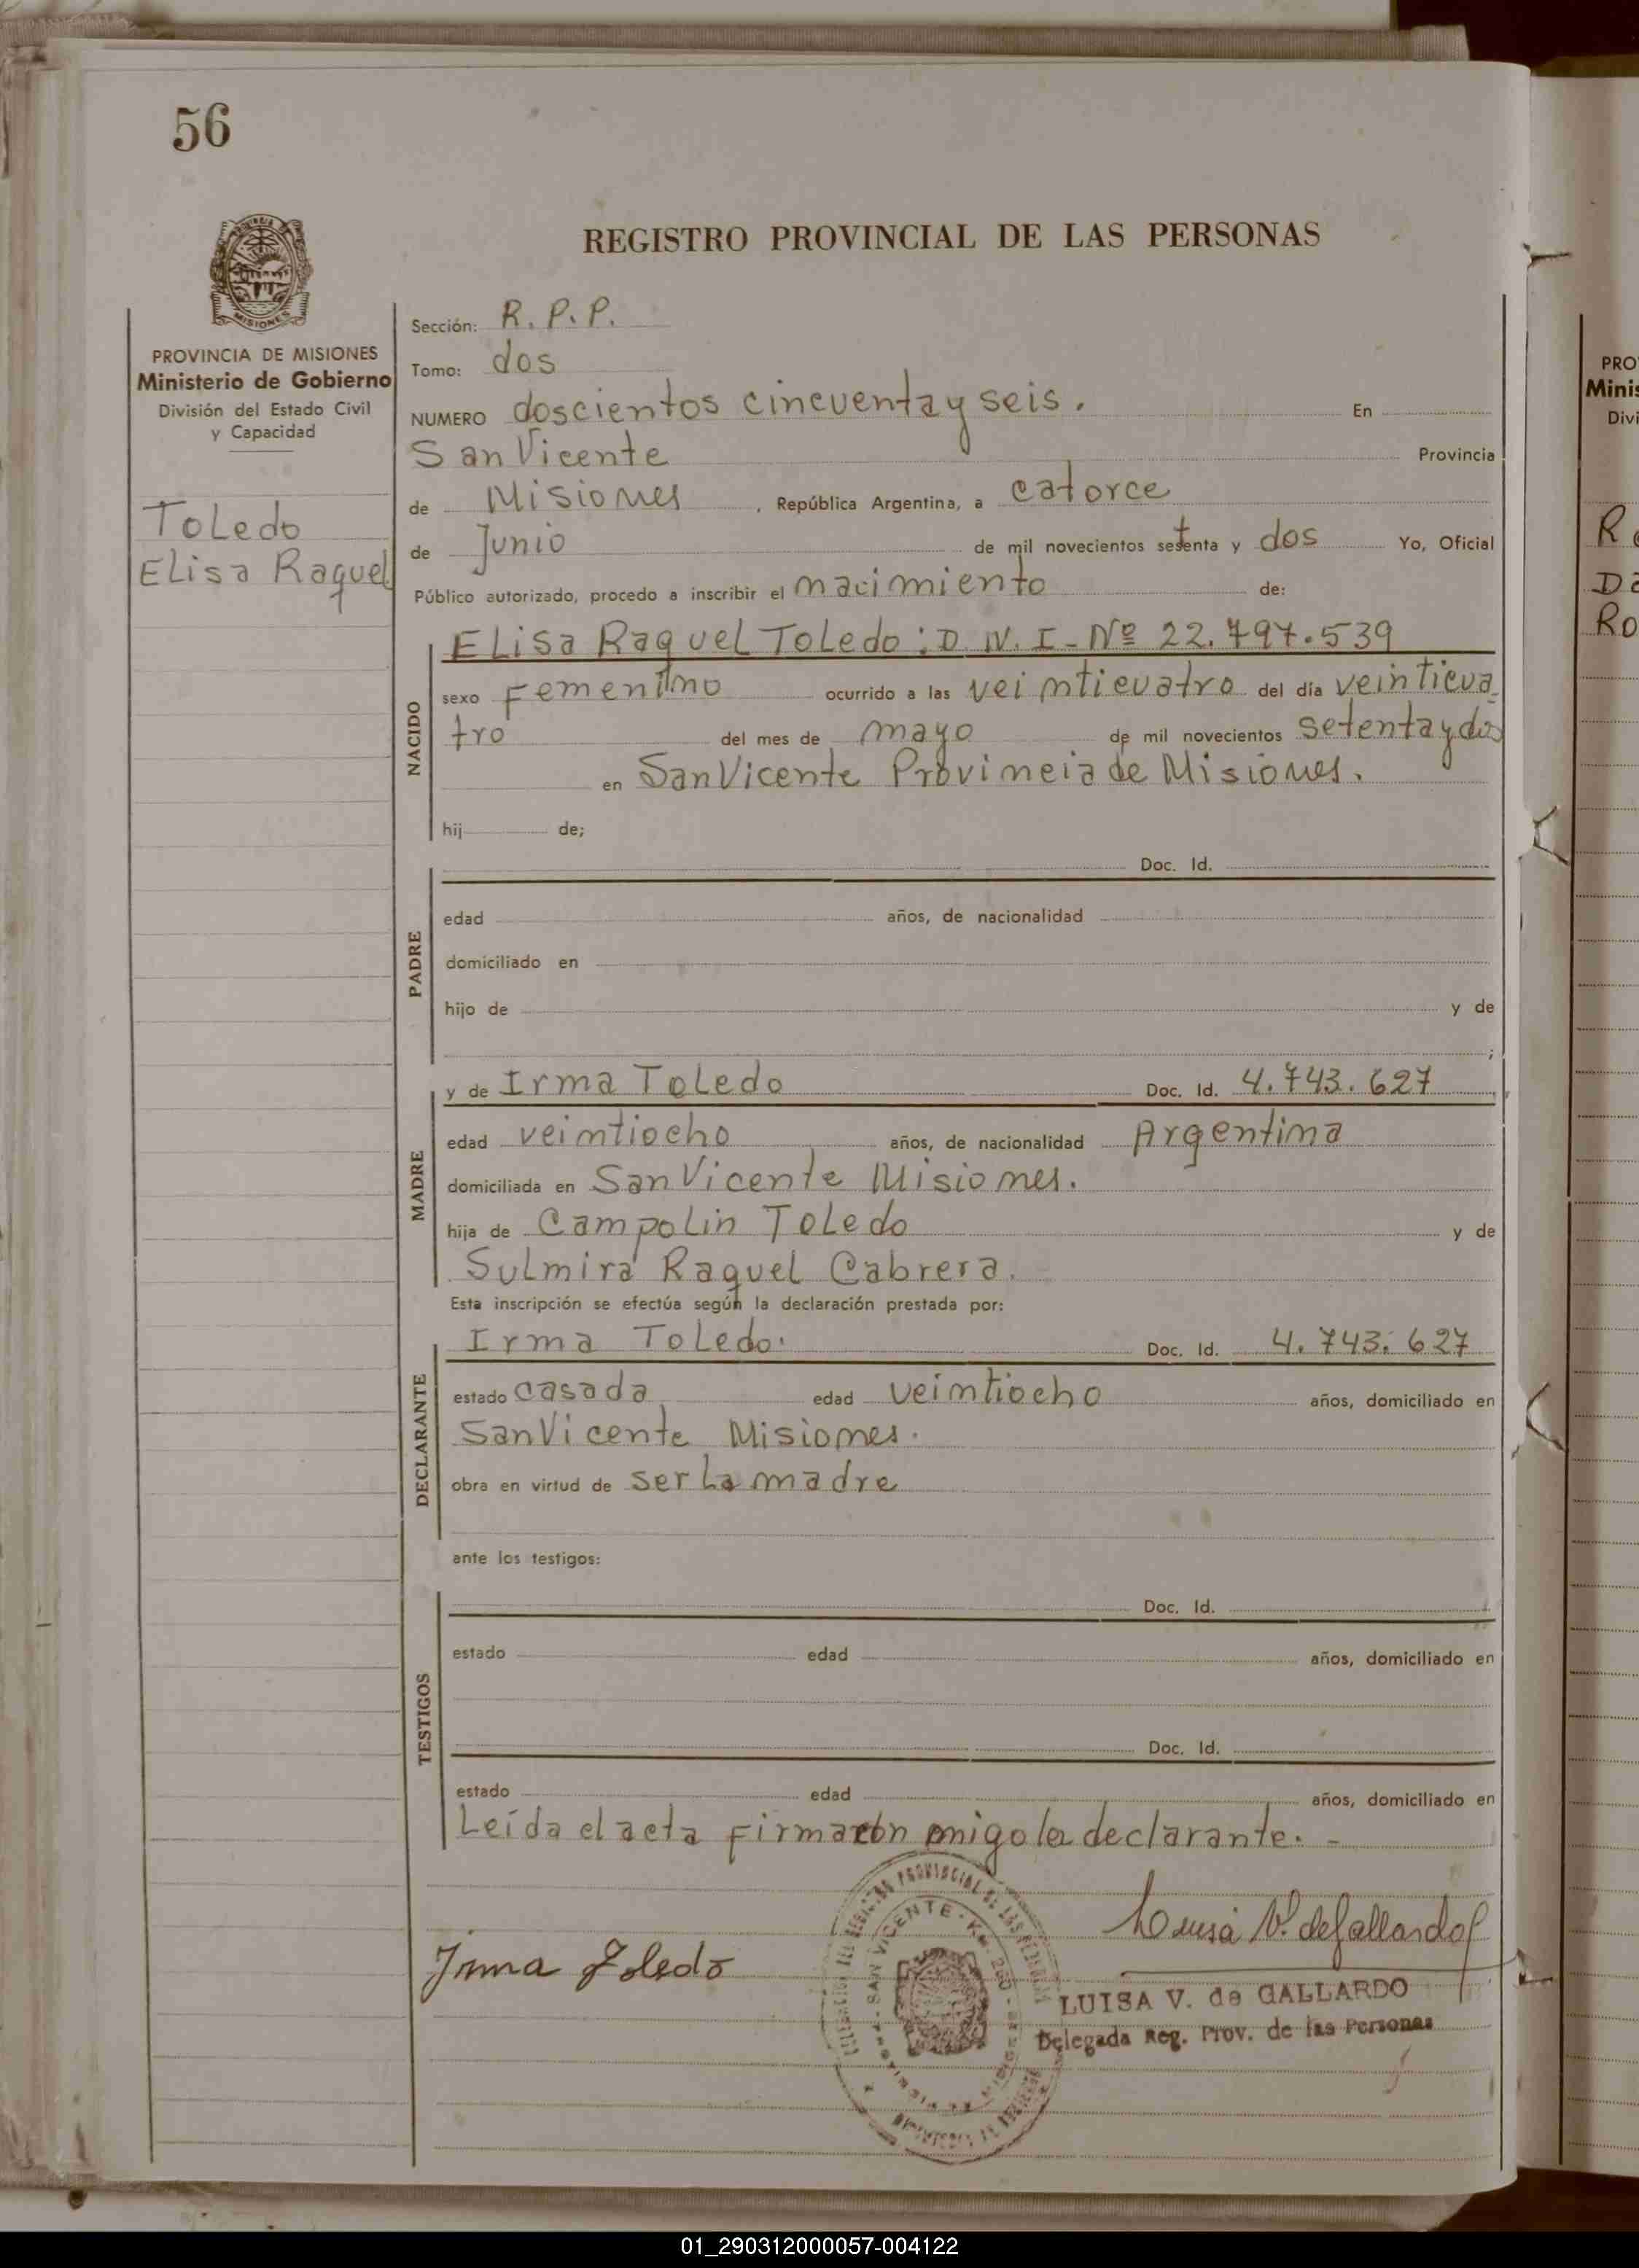 56
REGISTRO PROVINCIAL DE LAS PERSONAS
PROVINCIA DE MISIONES
Ministerio de Gobierno
División del Estado Civil
y Capacidad
Toledo
Elisa Raquel
Sección: R. P. P.
Tomo: dos
NUMERO doscientos cincuenta y seis. En
San Vicente Provincia
de Misiones, República Argentina, a catorce
de Junio de mil novecientos setenta y dos Yo, Oficial
Público autorizado, procedo a inscribir el nacimiento de:
NACIDO
Elisa Raquel Toledo: D. N. I - Nº 22.797.539
sexo Femenino ocurrido a las veinticuatro del día veinticua
tro del mes de mayo de mil novecientos setenta y dos
en San Vicente Provincia de Misiones.
hij de;
PADRE
Doc. Id.
edad años, de nacionalidad
domiciliado en
hijo de y de
;
MADRE
y de Irma Toledo Doc. Id. 4.743.627
edad veintiocho años, de nacionalidad Argentina
domiciliada en San Vicente Misiones.
hija de Campolin Toledo y de
Sulmira Raquel Cabrera.
Esta inscripción se efectúa según la declaración prestada por:
DECLARANTE
Irma Toledo. Doc. Id. 4.743.627
estado casada edad veintiocho años, domiciliado en
San Vicente Misiones.
obra en virtud de ser La madre
ante los testigos:
TESTIGOS
Doc. Id.
estado edad años, domiciliado en
Doc. Id.
estado edad años, domiciliado en
Leída el acta firmaron la declarante. -
Irma Toledo
Luisa V. de Gallardo
LUISA V. de GALLARDO
Delegada Reg. Prov. de las Personas
SAN VICENTE
PRO
Minis
Divi
01_290312000057-004122